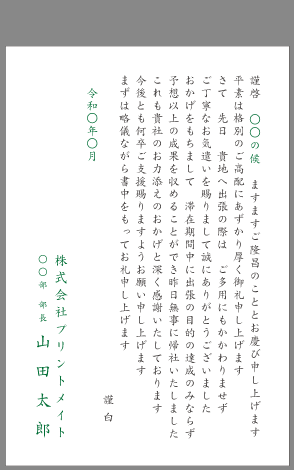 謹啓　〇〇の候　ますますご隆昌のこととお慶び申し上げます
平素は格別のご高配にあずかり厚く御礼申し上げます
さて　先日　貴地へ出張の際は　ご多用にもかかわりませず
ご丁寧なお気遣いを賜りまして誠にありがとうございました
おかげをもちまして　滞在期間中に出張の目的の達成のみならず
予想以上の成果を収めることができ昨日無事に帰社いたしました
これも貴社のお力添えのおかげと深く感謝いたしております
今後とも何卒ご支援賜りますようお願い申し上げます
まずは略儀ながら書中をもってお礼申し上げます
謹白
令和〇年〇月
株式会社プリントメイト
〇〇部　部長　山田太郎